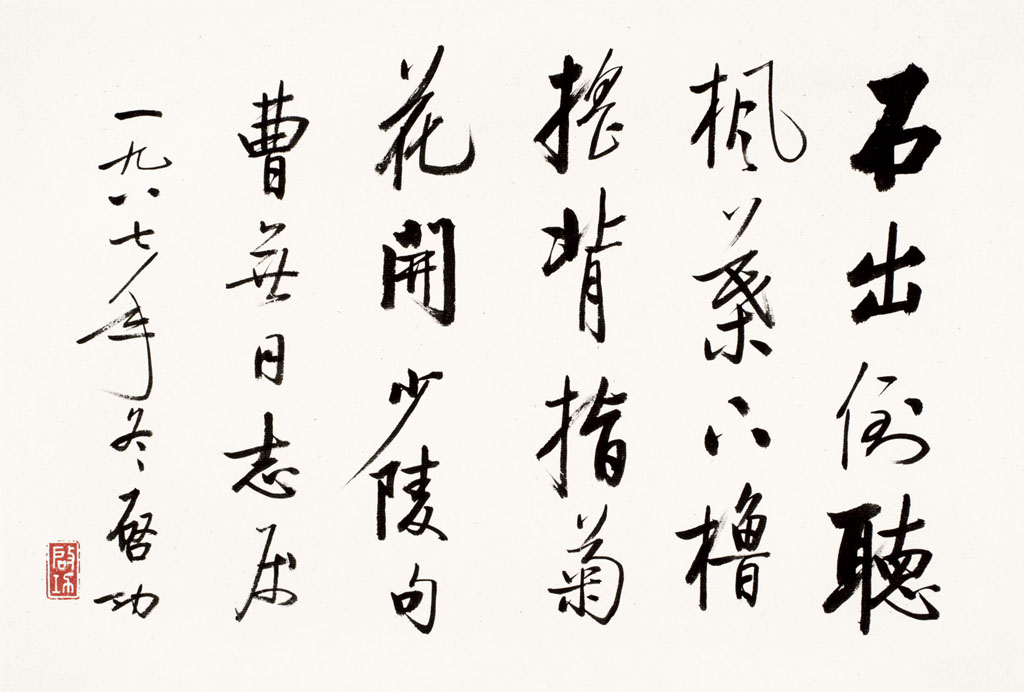 石出倒聽
楓葉下櫓
搖背指菊
花開少陵句
曹無日志
一九八七年冬啓功
啓功